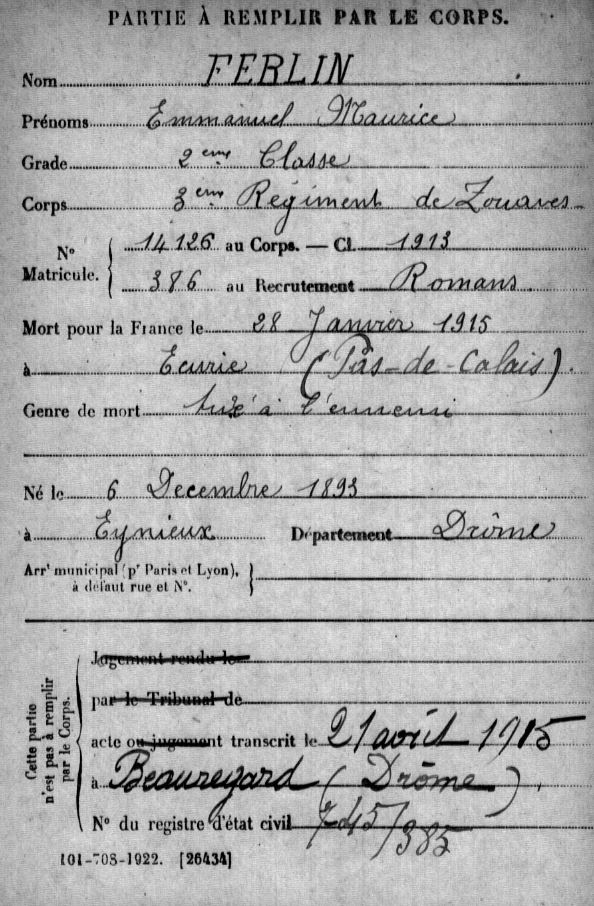 PARTIE À REMPLIR PAR LE CORPS.
Nom FERLIN
Prénoms Emmanuel Maurice
Grade 2eme Classe
Corps 3eme Régiment de Zouaves
Nº Matricule. 14126 au Corps. — Cl. 1913
386 au Recrutement Romans
Mort pour la France le 28 Janvier 1915
à Ecurie (Pas-de-Calais).
Genre de mort tué à l'ennemi
Né le 6 Decembre 1893
à Eynieux Département Drôme
Arrt municipal (pr Paris et Lyon),
à défaut rue et Nº.
Cette partie
n'est pas à remplir
par le Corps.
Jugement rendu le
par le Tribunal de
acte ou jugement transcrit le 21 août 1915
à Beauregard (Drôme)
Nº du registre d'état civil 745/385
101-708-1922. [26434]